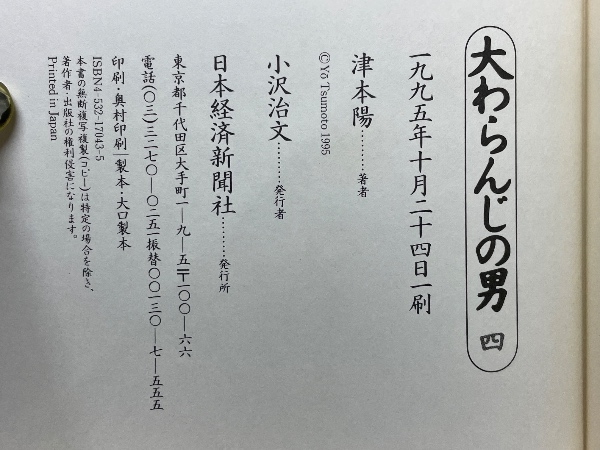 大わらんじの男 四
一九九五年十月二十四日一刷
津本陽………著者
©Yō Tsumoto 1995
小沢治文…………発行者
日本経済新聞社………発行所
東京都千代田区大手町一―九―五〒一〇〇―六六
電話(〇三)三二七〇―〇二五一振替〇〇一三〇―七―五五五
印刷・奥村印刷―製本・大口製本
ISBN4-532-17043-5
本書の無断複写複製(コピー)は特定の場合を除き、
著作者・出版社の権利侵害になります。
Printed in Japan